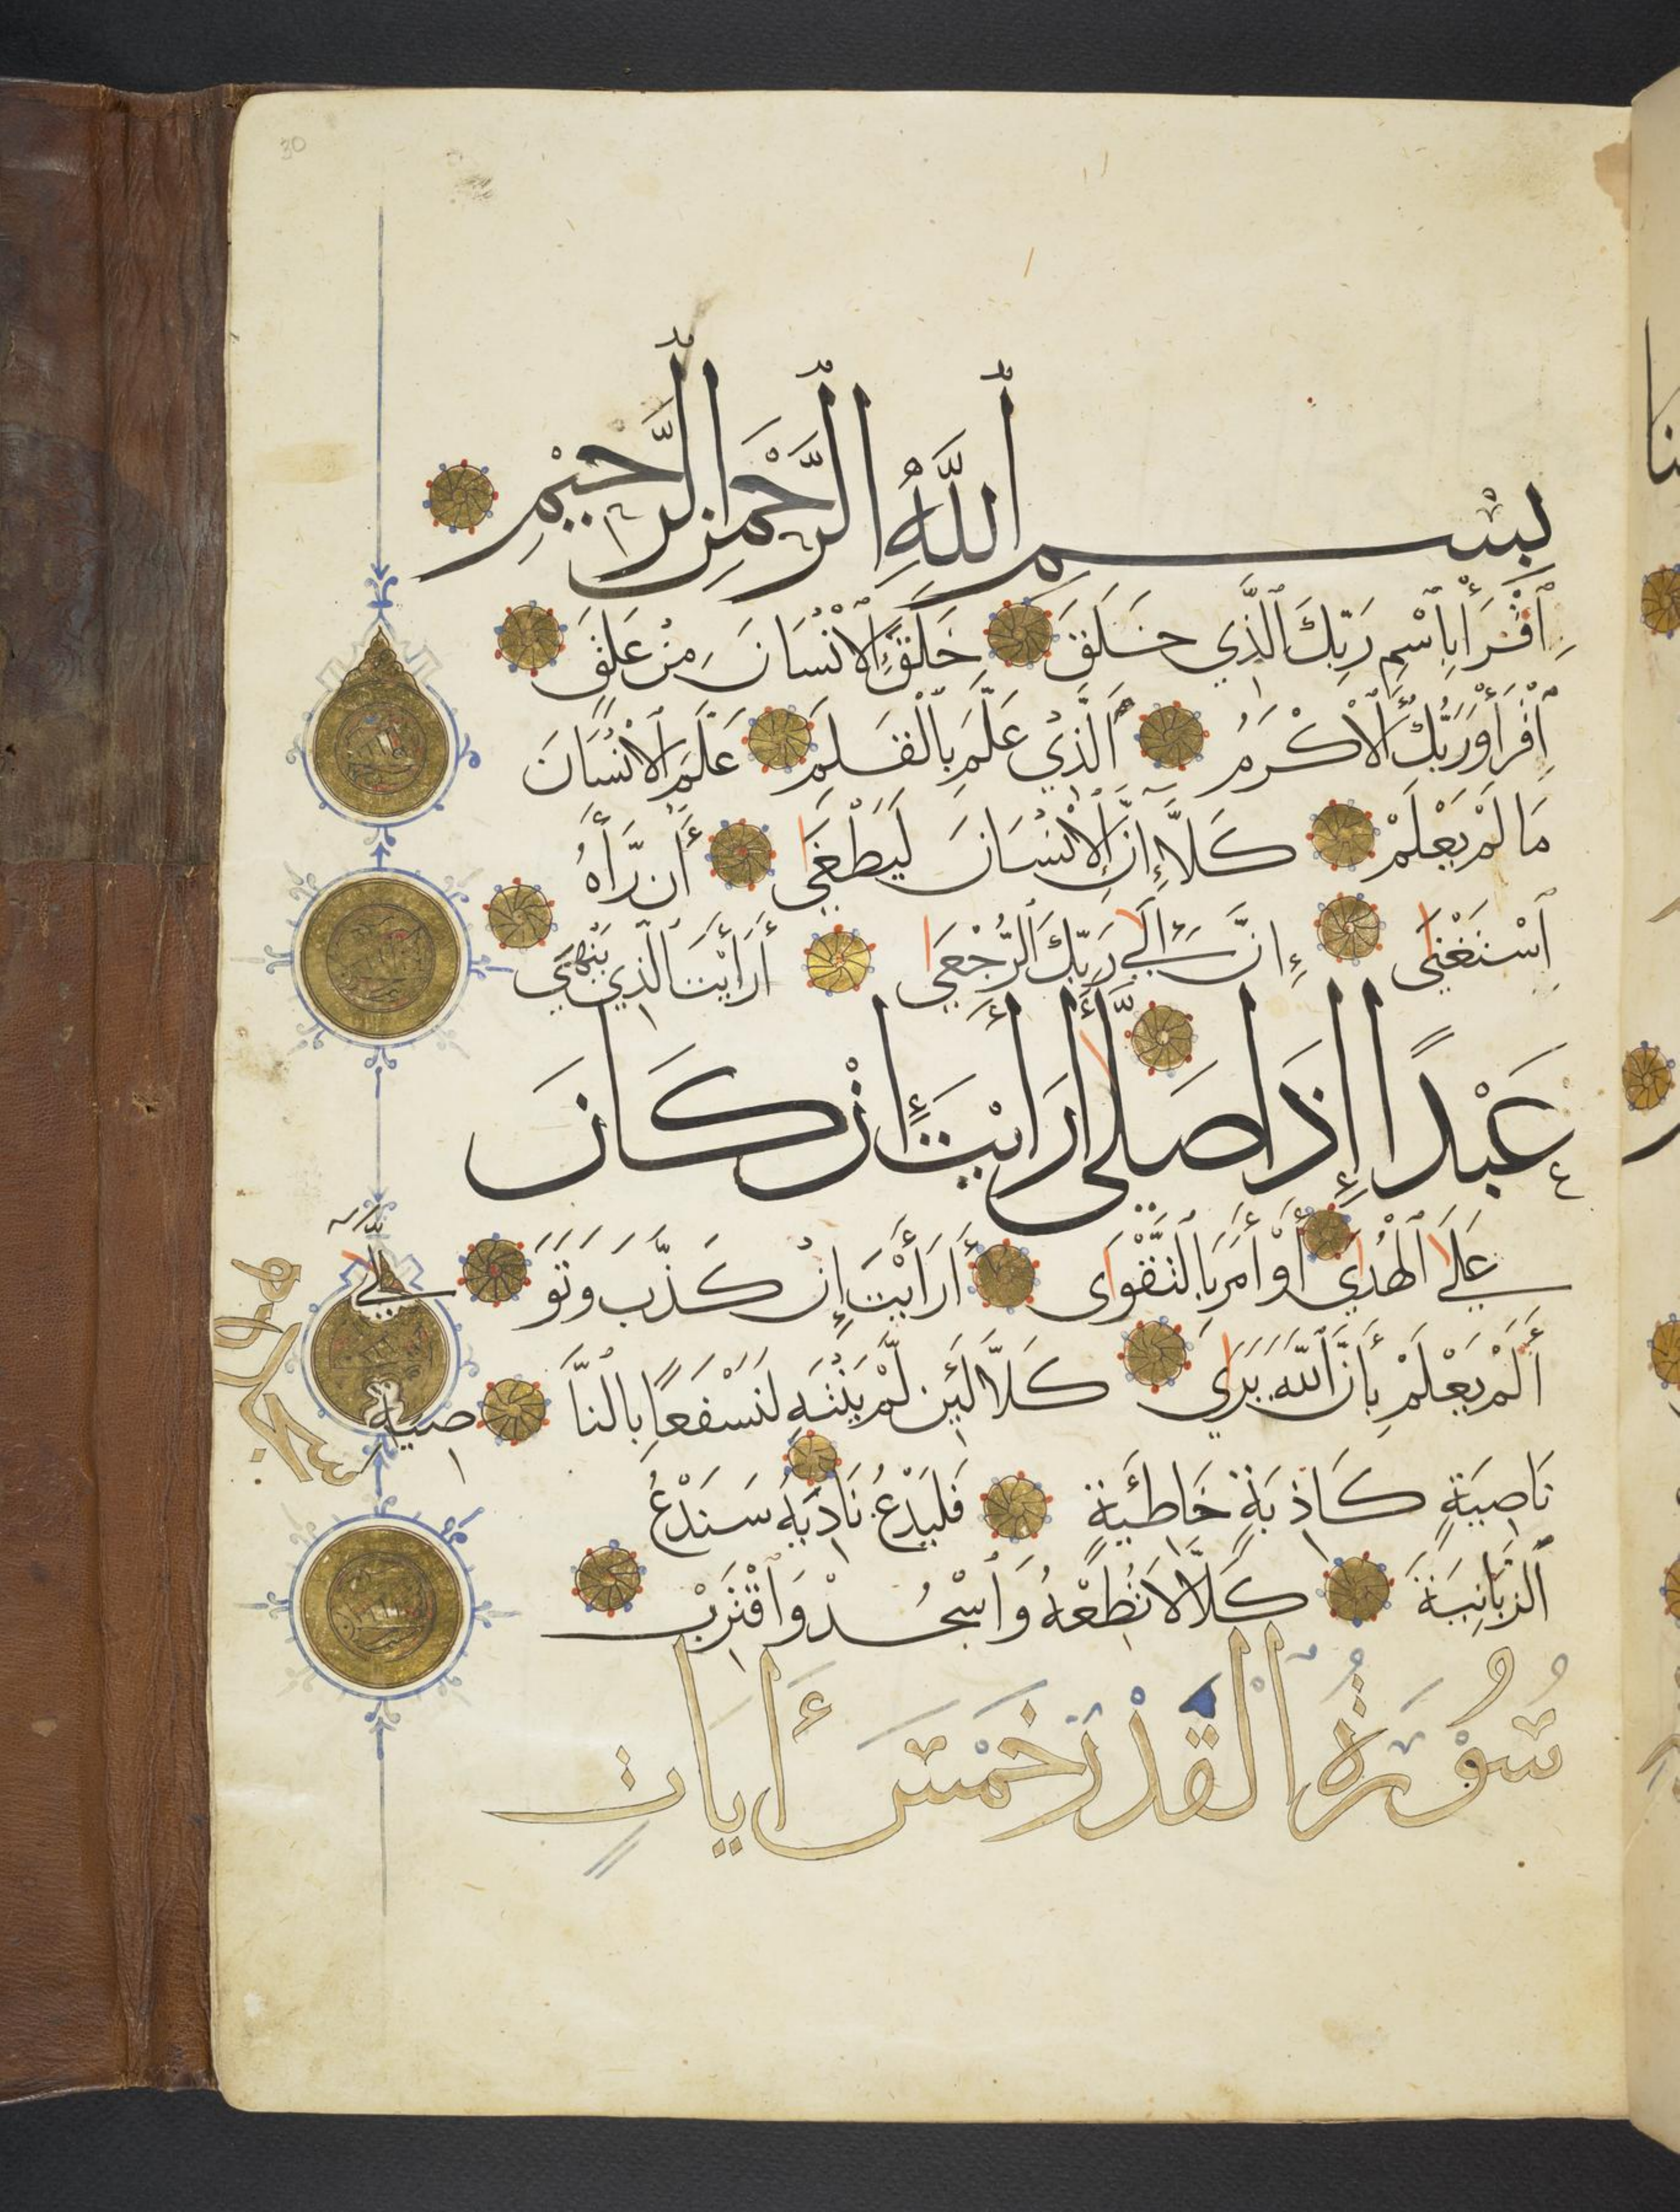 30
بِسْمِ ٱللَّهِ ٱلرَّحْمَٰنِ ٱلرَّحِيمِ
ٱقْرَأْ بِٱسْمِ رَبِّكَ ٱلَّذِي خَلَقَ خَلَقَ ٱلْإِنْسَانَ مِنْ عَلَقٍ
ٱقْرَأْ وَرَبُّكَ ٱلْأَكْرَمُ ٱلَّذِي عَلَّمَ بِٱلْقَلَمِ عَلَّمَ ٱلْإِنْسَانَ
مَا لَمْ يَعْلَمْ كَلَّا إِنَّ ٱلْإِنْسَانَ لَيَطْغَىٰ أَن رَّأَاهُ
ٱسْتَغْنَىٰ إِنَّ إِلَىٰ رَبِّكَ ٱلرُّجْعَىٰ أَرَأَيْتَ ٱلَّذِي يَنْهَىٰ
عَبْدًا إِذَا صَلَّىٰ أَرَأَيْتَ إِنْ كَانَ
عَلَىٰ ٱلْهُدَىٰ أَوْ أَمَرَ بِٱلتَّقْوَىٰ أَرَأَيْتَ إِنْ كَذَّبَ وَتَوَلَّىٰ
أَلَمْ يَعْلَمْ بِأَنَّ ٱللَّهَ يَرَىٰ كَلَّا لَئِن لَّمْ يَنْتَهِ لَنَسْفَعًا بِٱلنَّاصِيَةِ
نَاصِيَةٍ كَاذِبَةٍ خَاطِئَةٍ فَلْيَدْعُ نَادِيَهُ سَنَدْعُ
ٱلزَّبَانِيَةَ كَلَّا لَا تُطِعْهُ وَٱسْجُدْ وَٱقْتَرِبْ
سُورَةُ ٱلْقَدْرِ خَمْسُ أَيَاتٍ